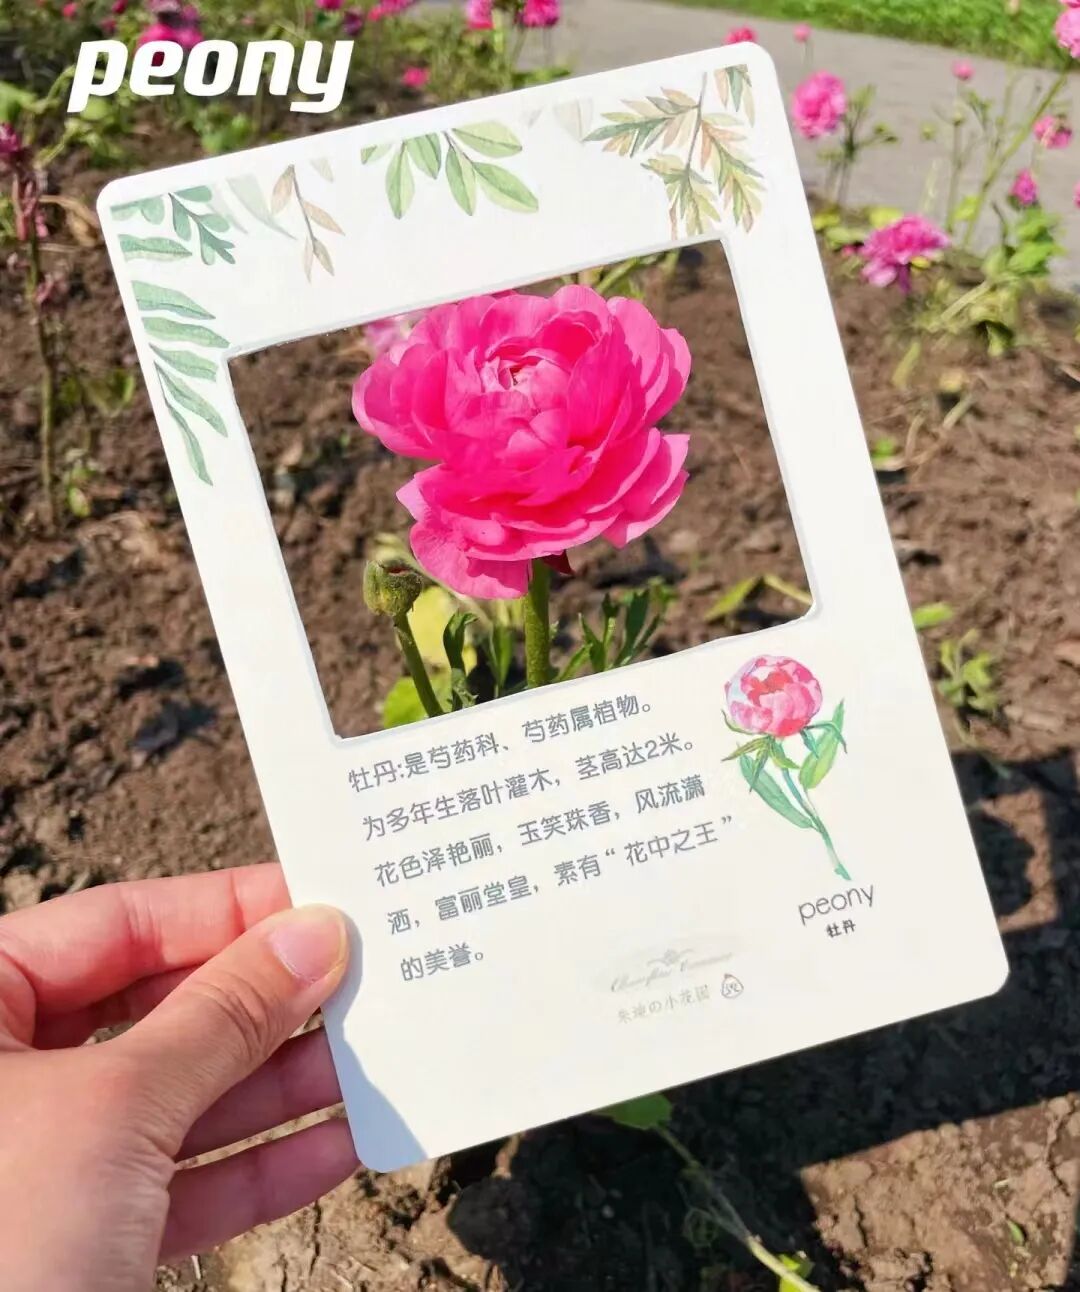 peony
牡丹:是芍药科、芍药属植物。
为多年生落叶灌木，茎高达2米。
花色泽艳丽，玉笑珠香，风流潇
洒，富丽堂皇，素有“花中之王”
的美誉。
peony
牡丹
の小花园